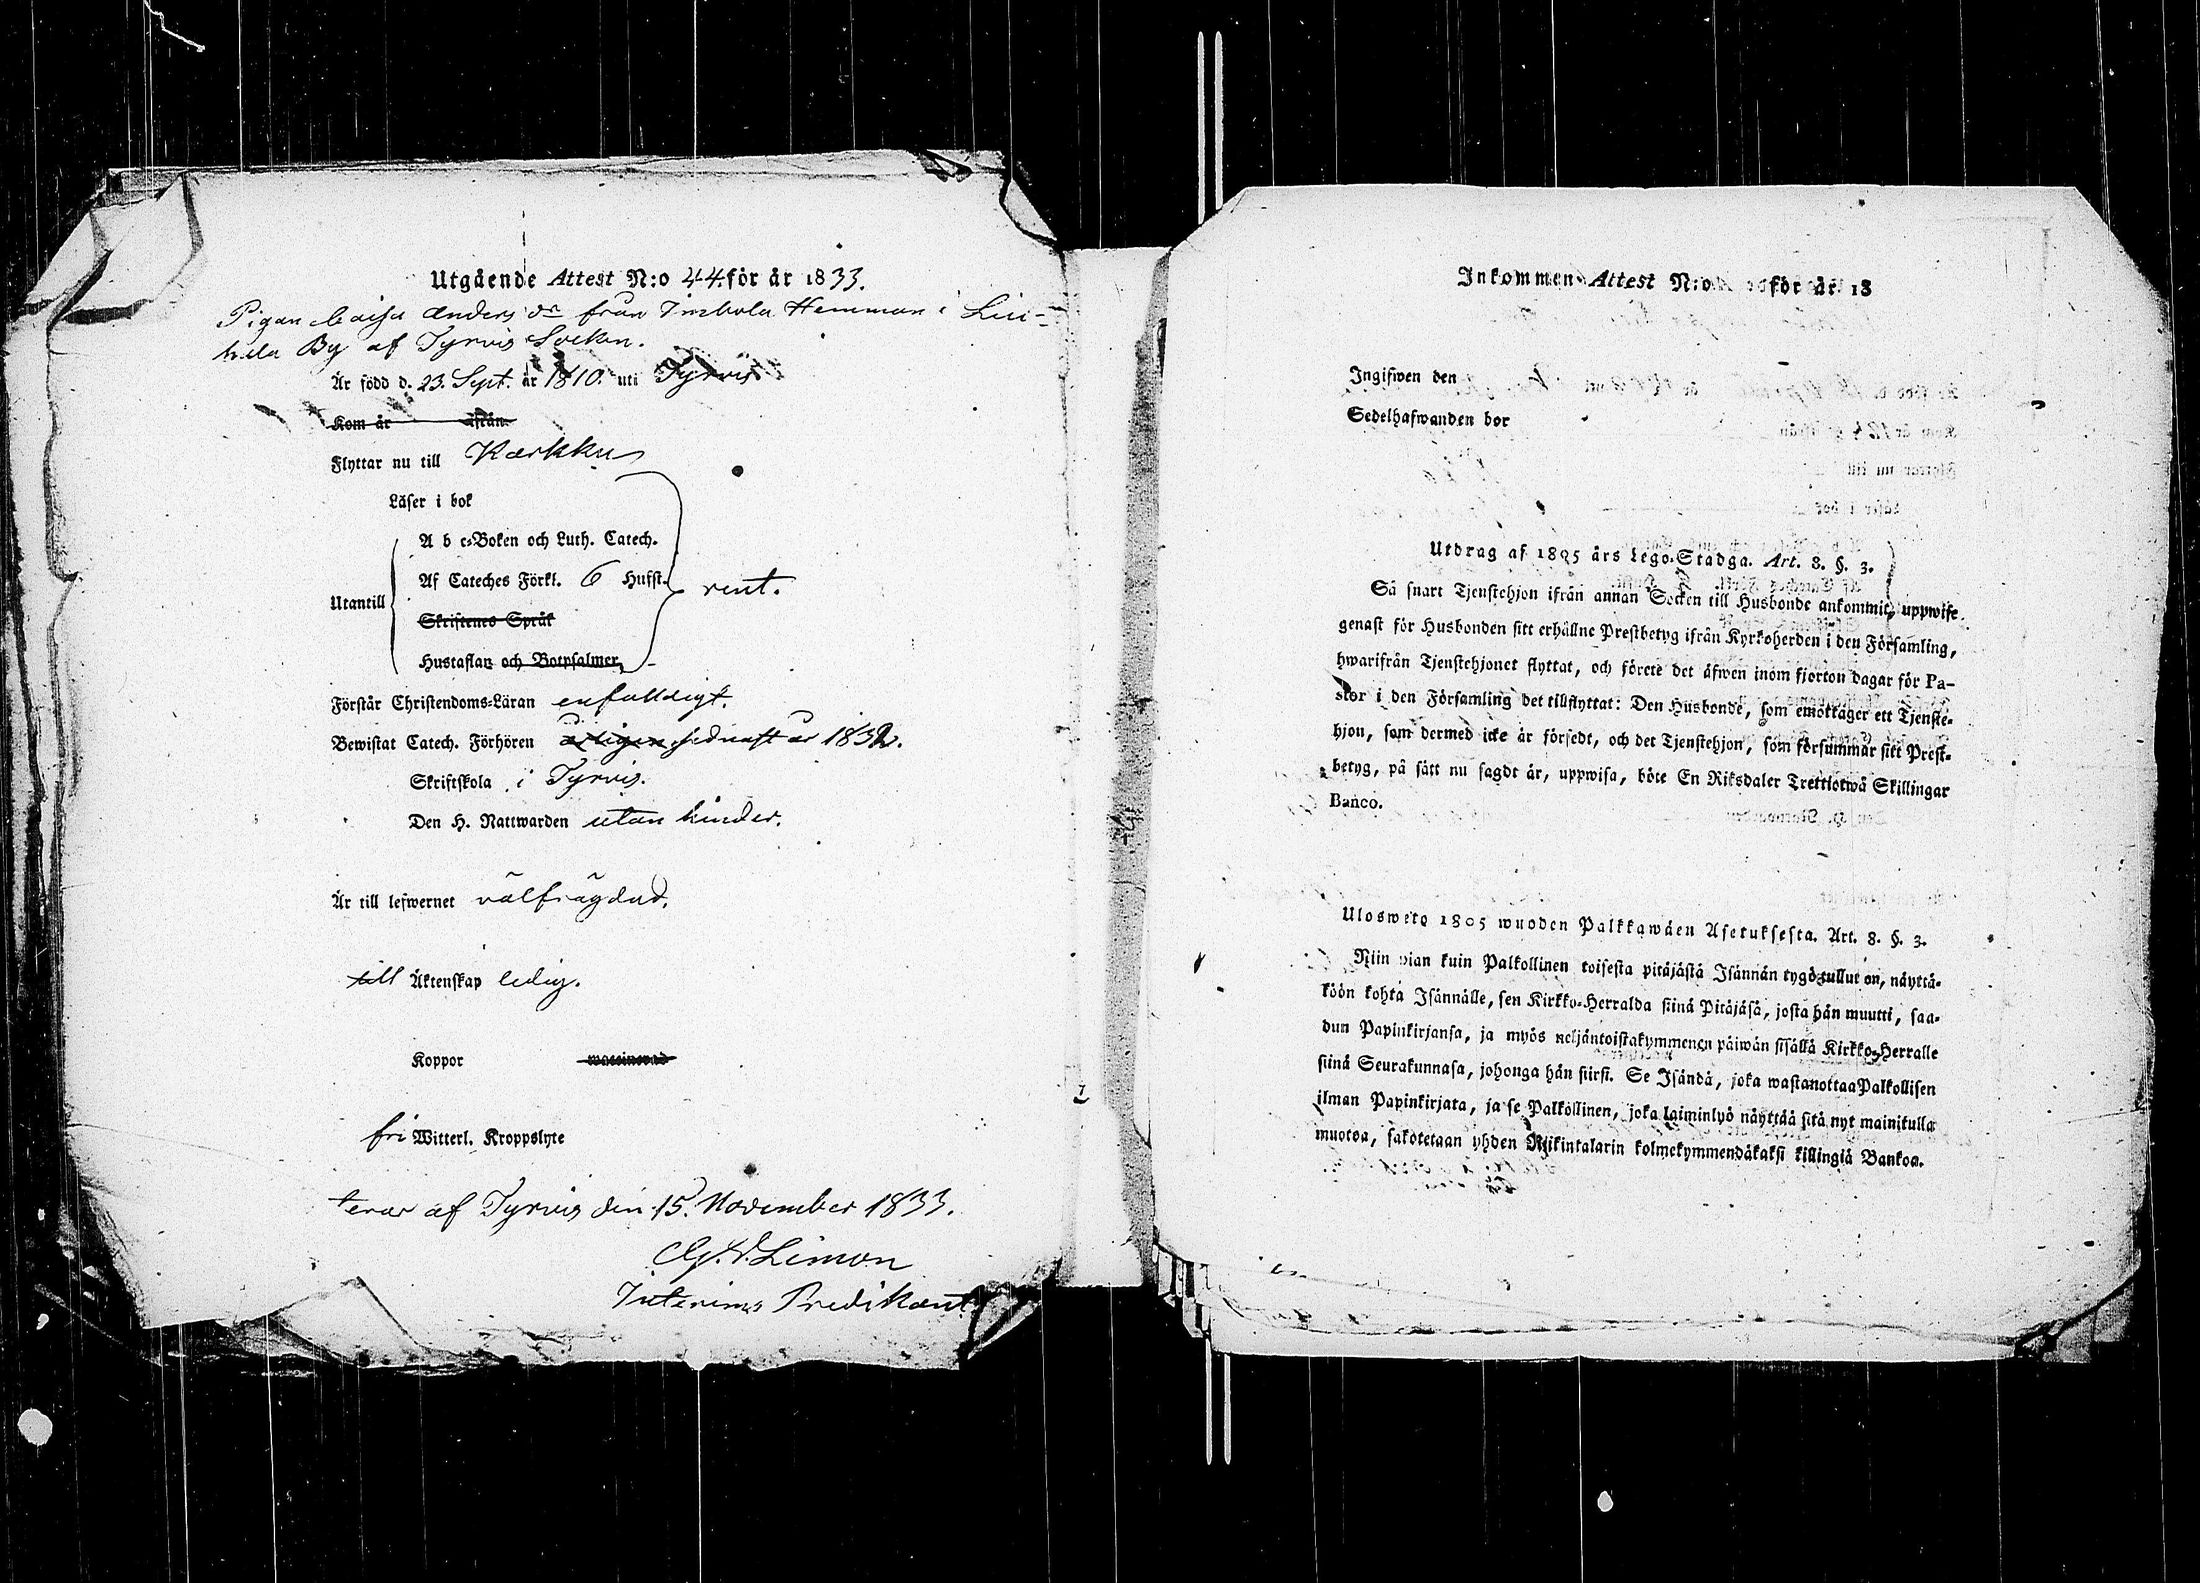 Utgående Attest N:o 44. för år 1833.
Pigan Caisa Anders dr från Timbola Hemman i Lii-
kila By af Tyrvis Socken.
Är född d. 23. Sept. år 1810. uti Tyrvis
Kom år ifrån
Flyttar nu till Karkku
Läser i bok
A b c-Boken och Luth. Catech.
Af Cateches Förkl. 6 Hufst.
Utantill rent.
Skriftenes Språk
Hustaflan och Botpsalmer
Förstår Christendoms-Läran enfaldigt.
Bewistat Catech. Förhören årligen sednast år 1832.
Skriftskola i Tyrvis.
Den H. Nattwarden utan hinder.
Är till lefwernet välfrägdad.
till Äktenskap ledig.
Koppor waccinerad
fri Witterl. Kroppslyte
terar af Tyrvis den 15. November 1833.
Limon
Interims Predikant.
Inkommen Attest N:o för år 18
Ingifwen den
Sedelhafwanden bor
Utdrag af 1805 års Lego-Stadga. Art. 8. §. 3.
Så snart Tjenstehjon ifrån annan Socken till Husbonde ankommit, uppwise
genast för Husbonden sitt erhållne Prestbetyg ifrån Kyrkoherden i den Församling,
hwarifrån Tjenstehjonet flyttat, och förete det äfwen inom fjorton dagar för Pa-
stor i den Församling det tillflyttat: Den Husbonde, som emottager ett Tjenste-
hjon, som dermed icke är försedt, och det Tjenstehjon, som försummar sitt Prest-
betyg, på sätt nu sagdt är, uppwisa, böte En Riksdaler Trettiotwå Skillingar
Banco.
Ulosweto 1805 wuoden Palkkawäen Asetuksesta. Art. 8. §. 3.
Niin pian kuin Palkollinen toisesta pitäjästä Isännän tygö tullut on, näyttä-
köön kohta Isännälle, sen Kirkko-Herralda siinä Pitäjäsä, josta hän muutti, saa-
dun Papinkirjansa, ja myös neljäntoistakymmenen päiwän sisällä Kirkko-Herralle
siinä Seurakunnasa, johonga hän siirsi. Se Isändä, joka wastanottaa Palkollisen
ilman Papinkirjata, ja se Palkollinen, joka laiminlyö näyttää sitä nyt mainitulla
muotoa, sakotetaan yhden Riikintalarin kolmekymmendäkaksi killingiä Bankoa.